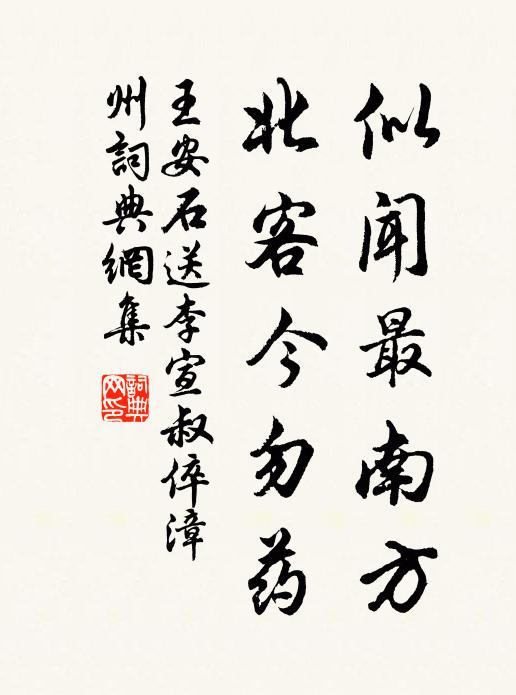 似闻最南方
北客今勿药
王安石送李宣叔倅漳
州詞典網集
詞典网印